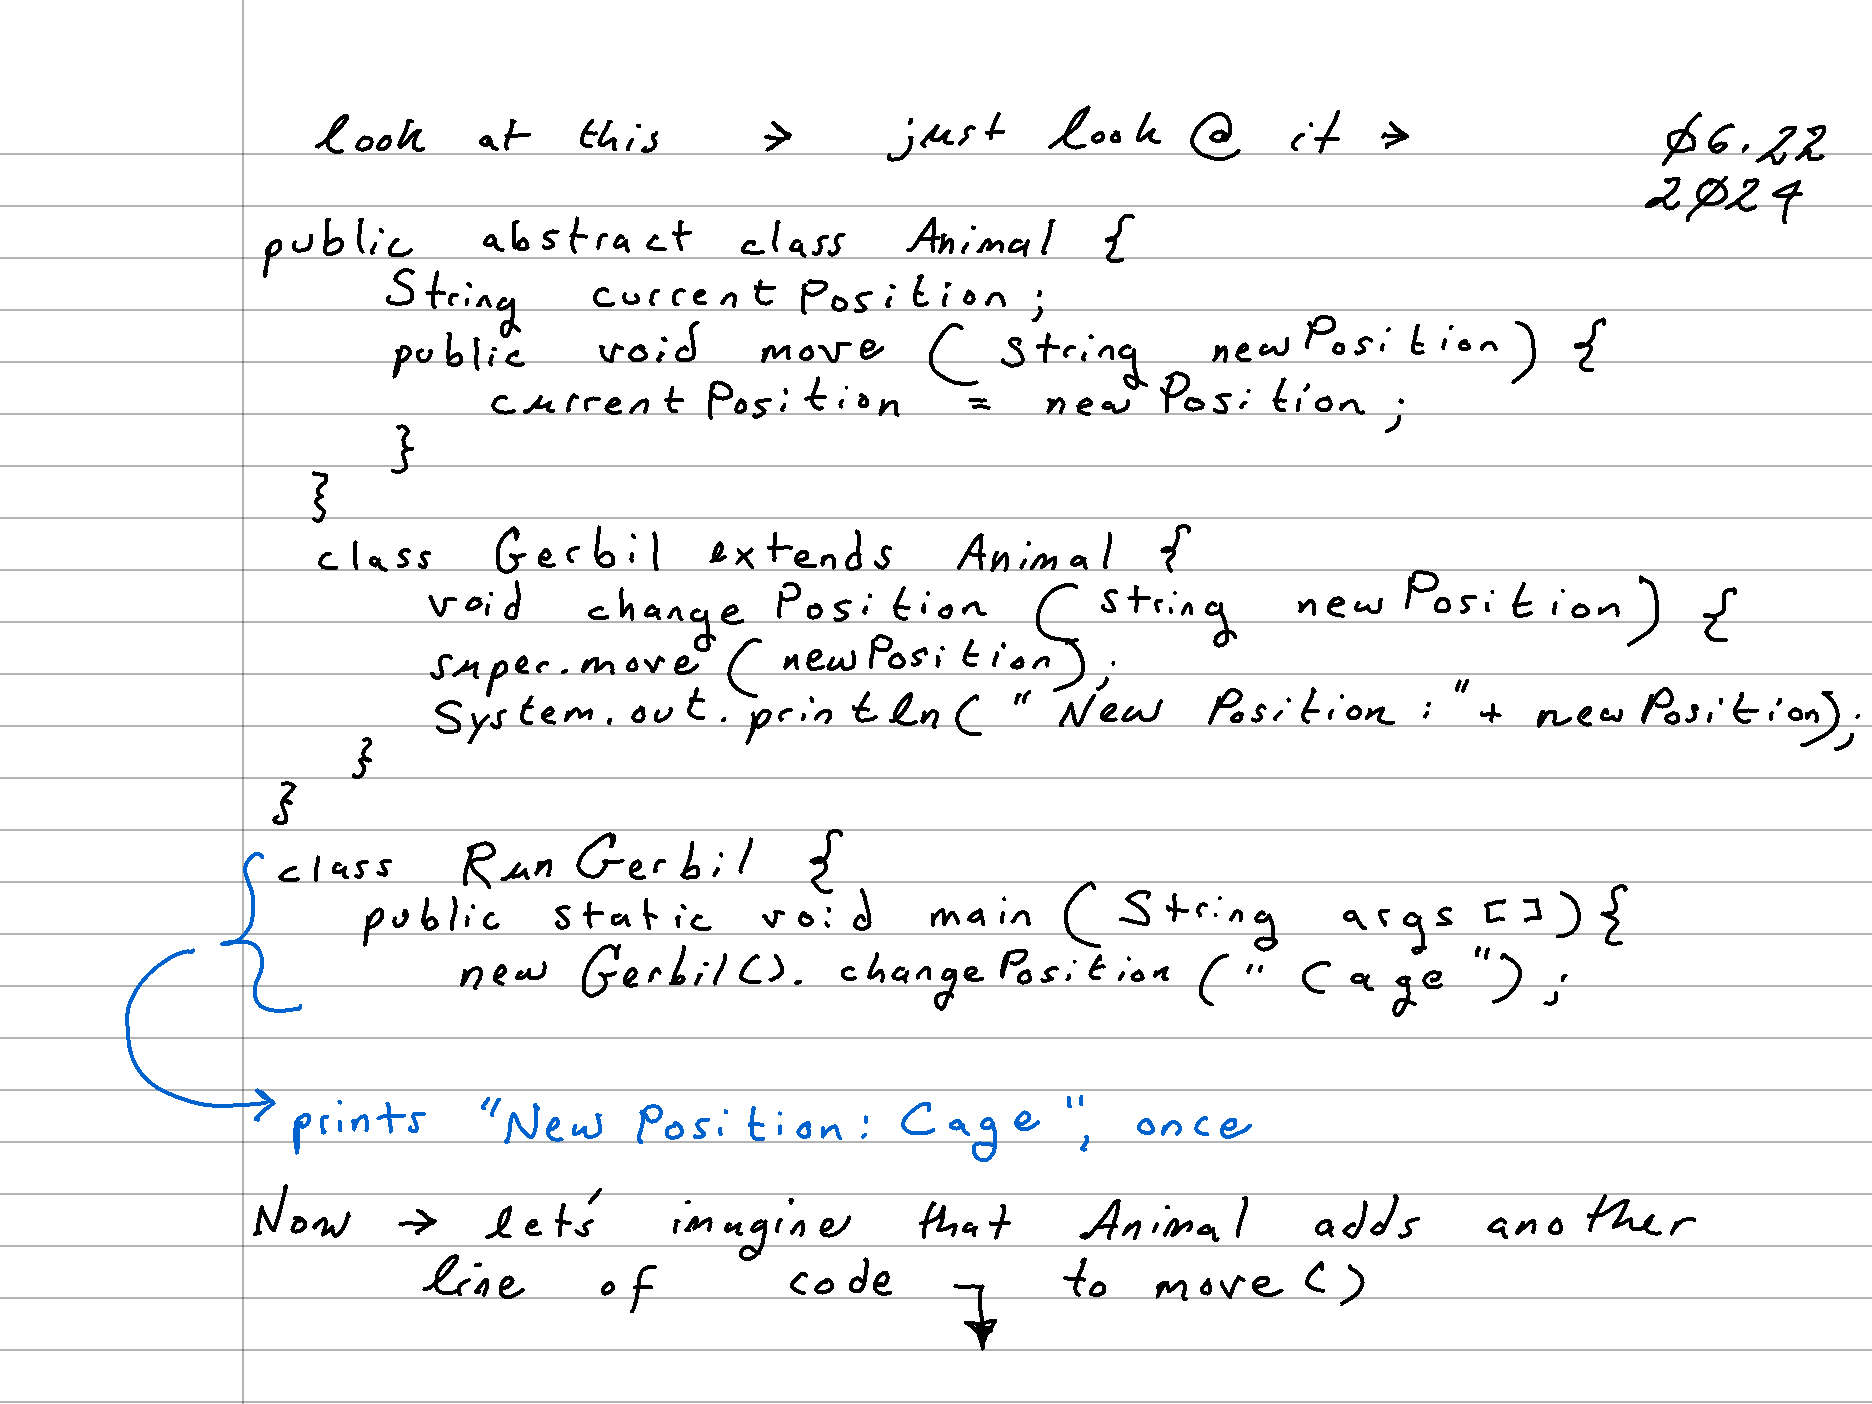 look at this → just look @ it → 06.22
2024
public abstract class Animal {
String currentPosition;
public void move (String newPosition) {
currentPosition = newPosition;
}
}
class Gerbil extends Animal {
void changePosition (String newPosition) {
super.move (newPosition);
System.out.println("New Position:"+ newPosition);
}
}
class RunGerbil {
public static void main (String args []){
new Gerbil().changePosition ("Cage");
prints "New Position: Cage", once
Now → let's imagine that Animal adds another
line of code to move()